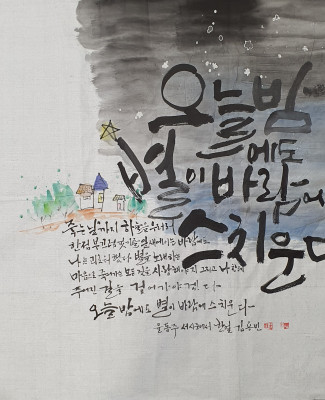 오늘밤
에도
별이 바람에
스치운다
죽는날까지 하늘을 우러러
한점 부끄럼 없기를 잎새에 이는 바람에도
나는 괴로워했다 별을 노래하는
마음으로 죽어가는 모든 것을 사랑해야지 그리고 나한테
주어진 길을 걸어가야겠다
오늘밤에도 별이 바람에 스치운다
윤동주 서시에서 한길 김용빈